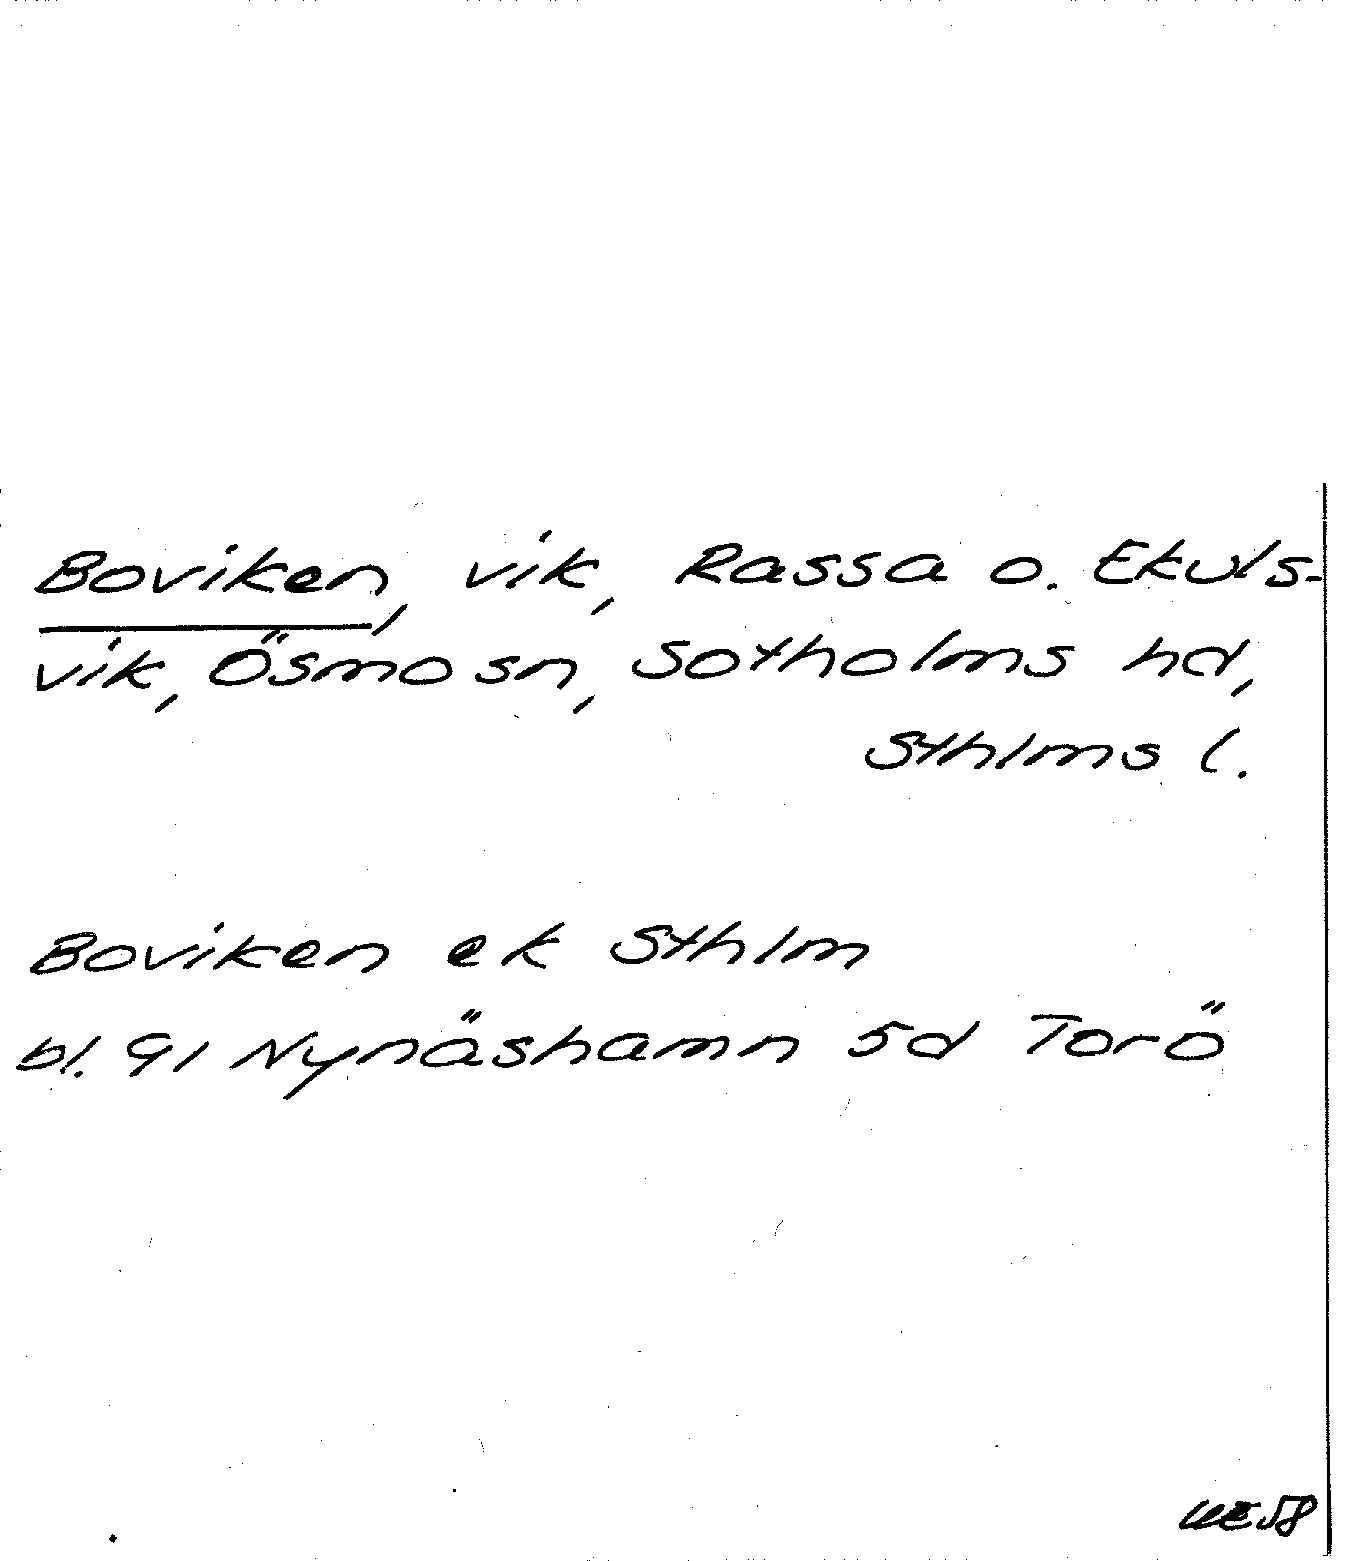 Boviken, vik, Rassa o. Ekuls-
vik, Ösmo sn, Sotholms hd,
Sthlms l.
Boviken ek Sthlm
bl. 91 Nynäshamn 5d Torö